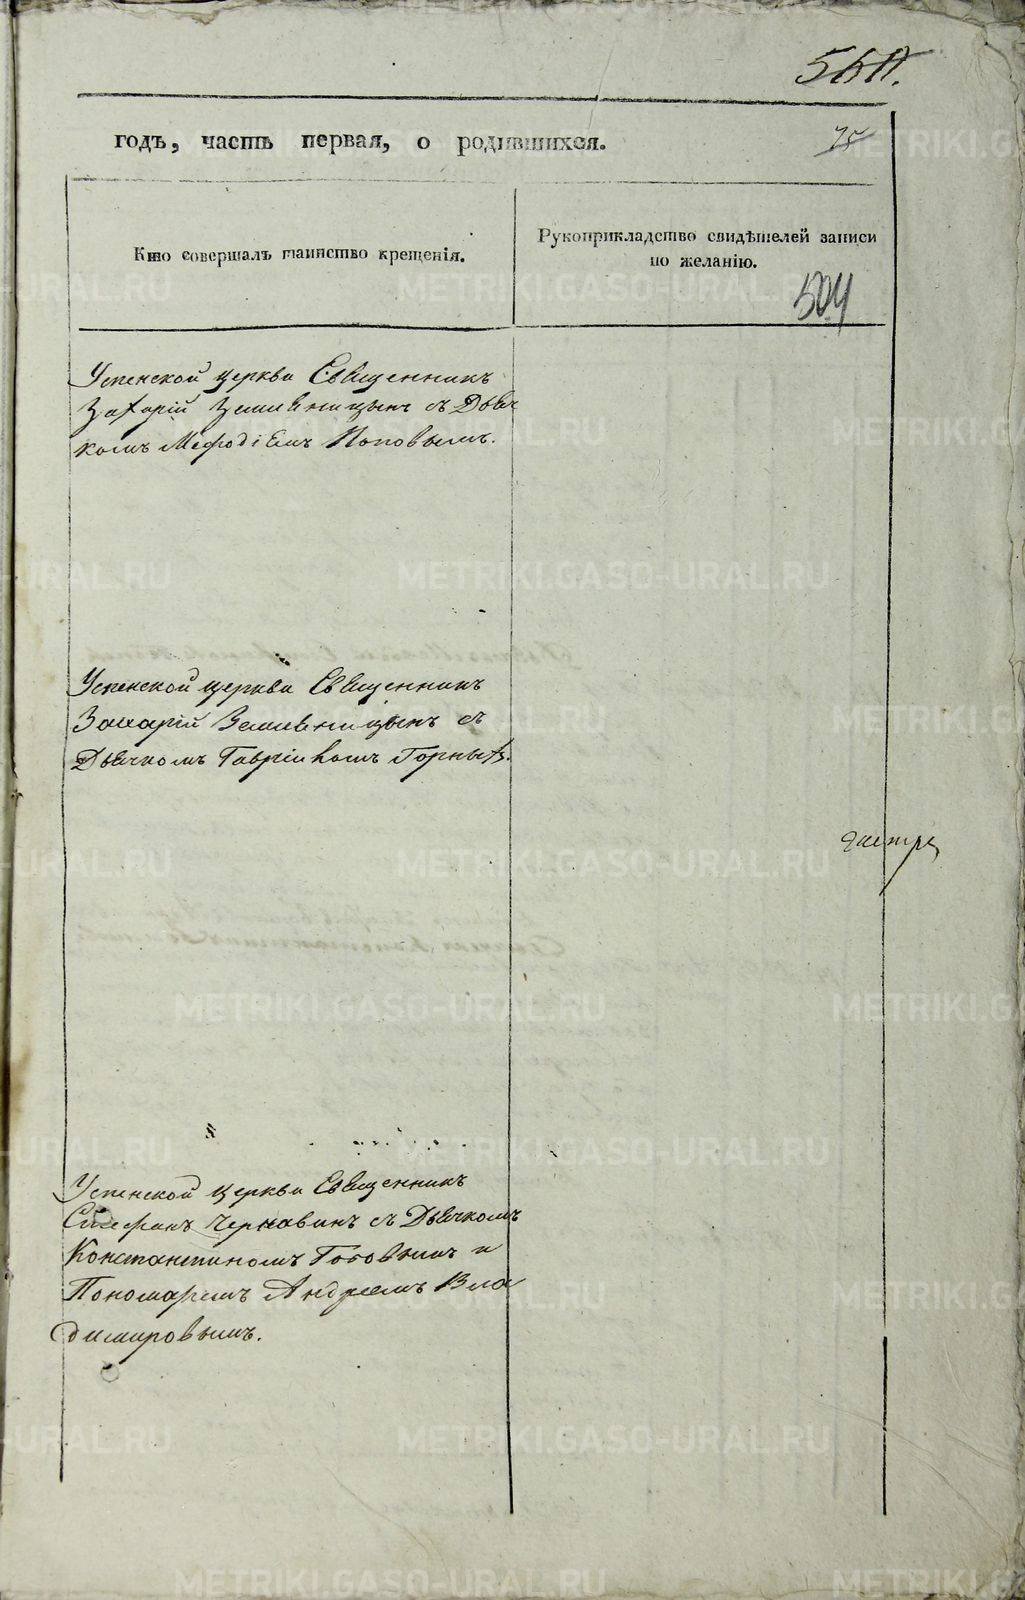 годъ, часть первая, о родившихся.
75
Кто совершалъ таинство крещенія.
Рукоприкладство свидѣтелей записи
по желанію.
504
Успенской церкви Священникъ
Захарій Земляницынъ съ Дьяч
комъ Мефодіемъ Поповымъ.
Успенской церкви Священникъ
Захарій Земляницынъ съ
Дьячкомъ Гавріиломъ Горныхъ.
Успенской церкви Священникъ
Стефанъ Чернавинъ съ Дьячкомъ
Константиномъ Поповымъ и
Пономаремъ Андреемъ Вла
димировымъ.
METRIKI.GASO-URAL.RU